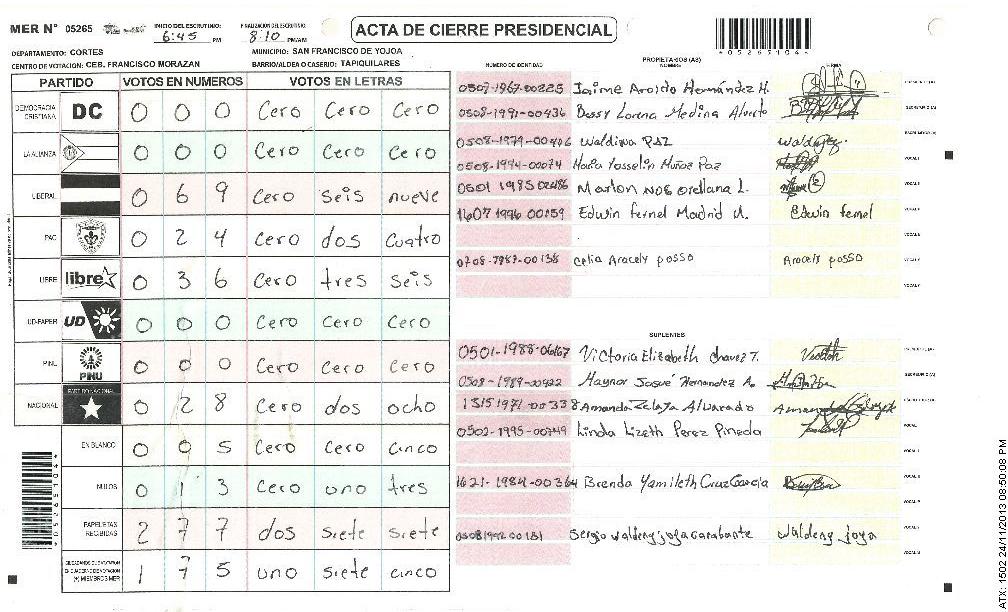 MER N° 05265 INICIO DEL ESCRUTINIO: 6:45 PM FINALIZACION DEL ESCRUTINIO: 8:10 PM/AM ACTA DE CIERRE PRESIDENCIAL
*05265104*
DEPARTAMENTO: CORTES MUNICIPIO: SAN FRANCISCO DE YOJOA
CENTRO DE VOTACION: CEB. FRANCISCO MORAZAN BARRIO/ALDEA O CASERIO: TAPIQUILARES
PARTIDO VOTOS EN NUMEROS VOTOS EN LETRAS
DEMOCRACIA CRISTIANA DC 0 0 0 Cero Cero Cero
LA ALIANZA 0 0 0 Cero Cero Cero
LIBERAL 0 6 9 Cero seis nueve
PAC 0 2 4 Cero dos cuatro
LIBRE libre 0 3 6 Cero tres seis
UD-FAPER UD 0 0 0 Cero Cero Cero
PINU PINU 0 0 0 Cero Cero Cero
NACIONAL PARTIDO NACIONAL 0 2 8 Cero dos ocho
EN BLANCO 0 0 5 Cero Cero cinco
NULOS 0 1 3 Cero uno tres
PAPELETAS RECIBIDAS 2 7 7 dos siete siete
(+) MIEMBROS MER 1 7 5 uno siete cinco
*05265104*
NUMERO DE IDENTIDAD PROPIETARIOS (AS) NOMBRE FIRMA
0507-1967-00225 Jaime Aroldo Hernández H.
0508-1991-00436 Bessy Lorena Medina
0508-1979-00446 Waldina Paz
0508-1994-00074 Maria Yosselin Muñoz Paz
0501 1985 02486 Marlon Noe Orellana L.
1607 1996 00159 Edwin fernel Madrid M. Edwin fernel
0208-1987-00138 Celia Aracely posso Aracely posso
SUPLENTES
0501-1988-06167 Victoria Elizabeth Chavez T.
0508-1989-00922 Maynor Josué Hernandez A.
1315 1971-00338 Amanda Zelaya Alvarado
0502-1995-00749 Linda Lizeth Perez Pineda
1621-1984-00364 Brenda Yamileth Cruz Garcia
0508 1992 00181 Sergio Waldeny joya Waldeny joya
ATX: 1502 24/11/2013 08:50:08 PM